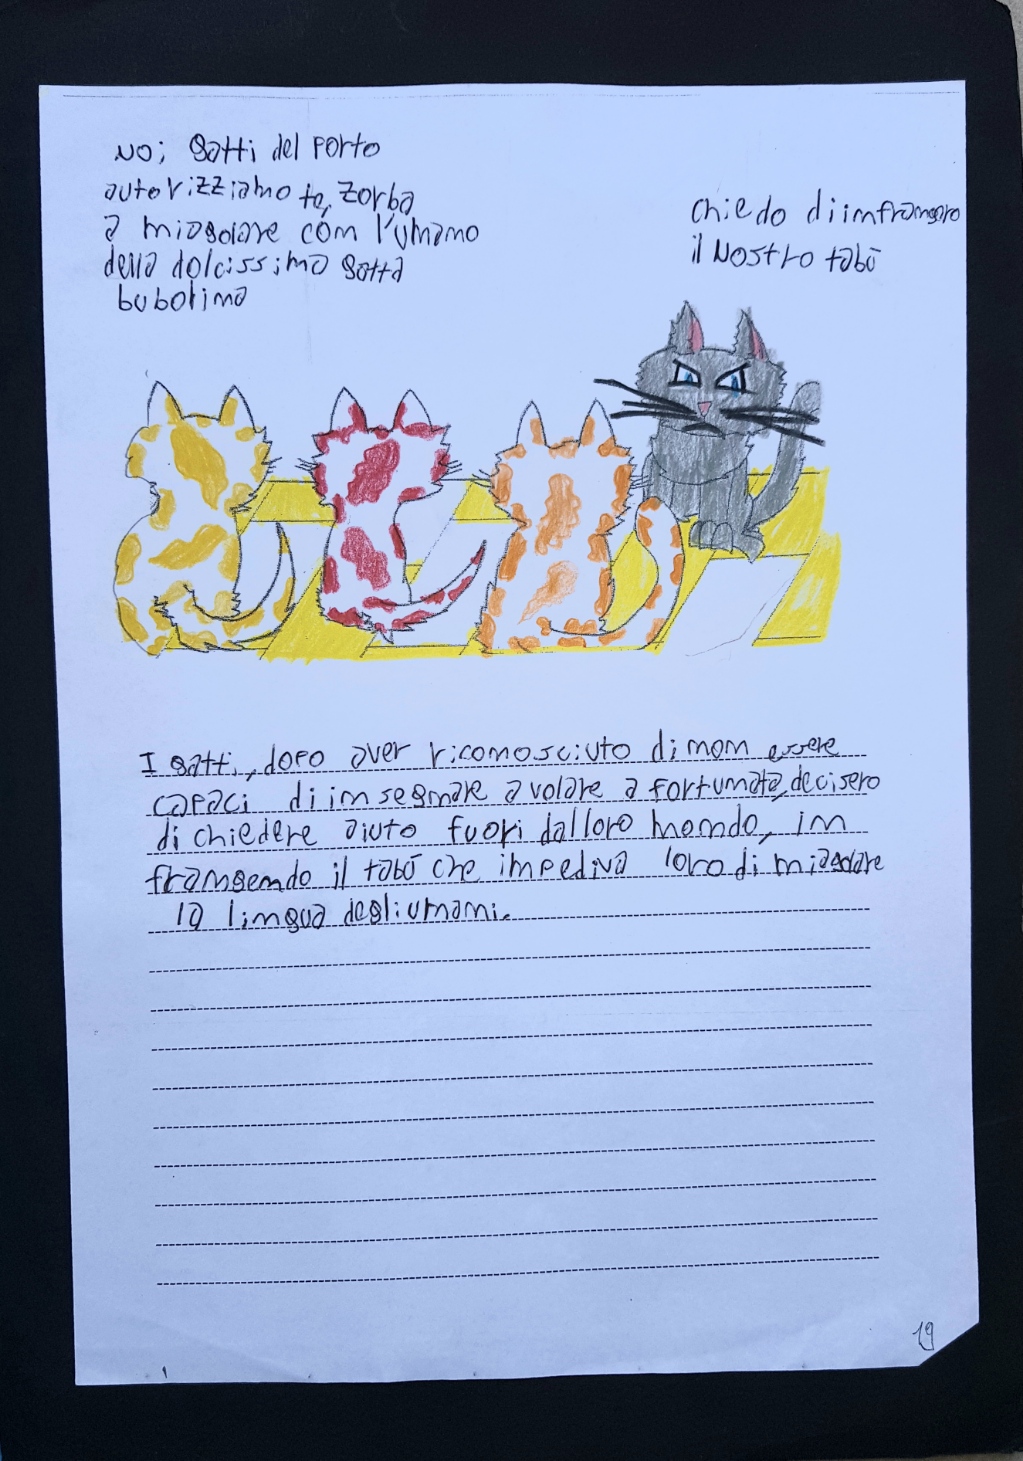 NO; gatti del Porto
autorizziamo te, Zorba
a miagolare com l'umamo
della dolcissima gatta
bubolima
chiedo diimframgere
il Nostro tabù
I gatti, dopo aver ricomosciuto dimom essere
capaci diimsegmare a volare a fortumata, decisero
di chiedere aiuto fuori dalloro momdo, im
framgemdo il tabù che impediva loro di miagolare
la limgua degliumami.
19